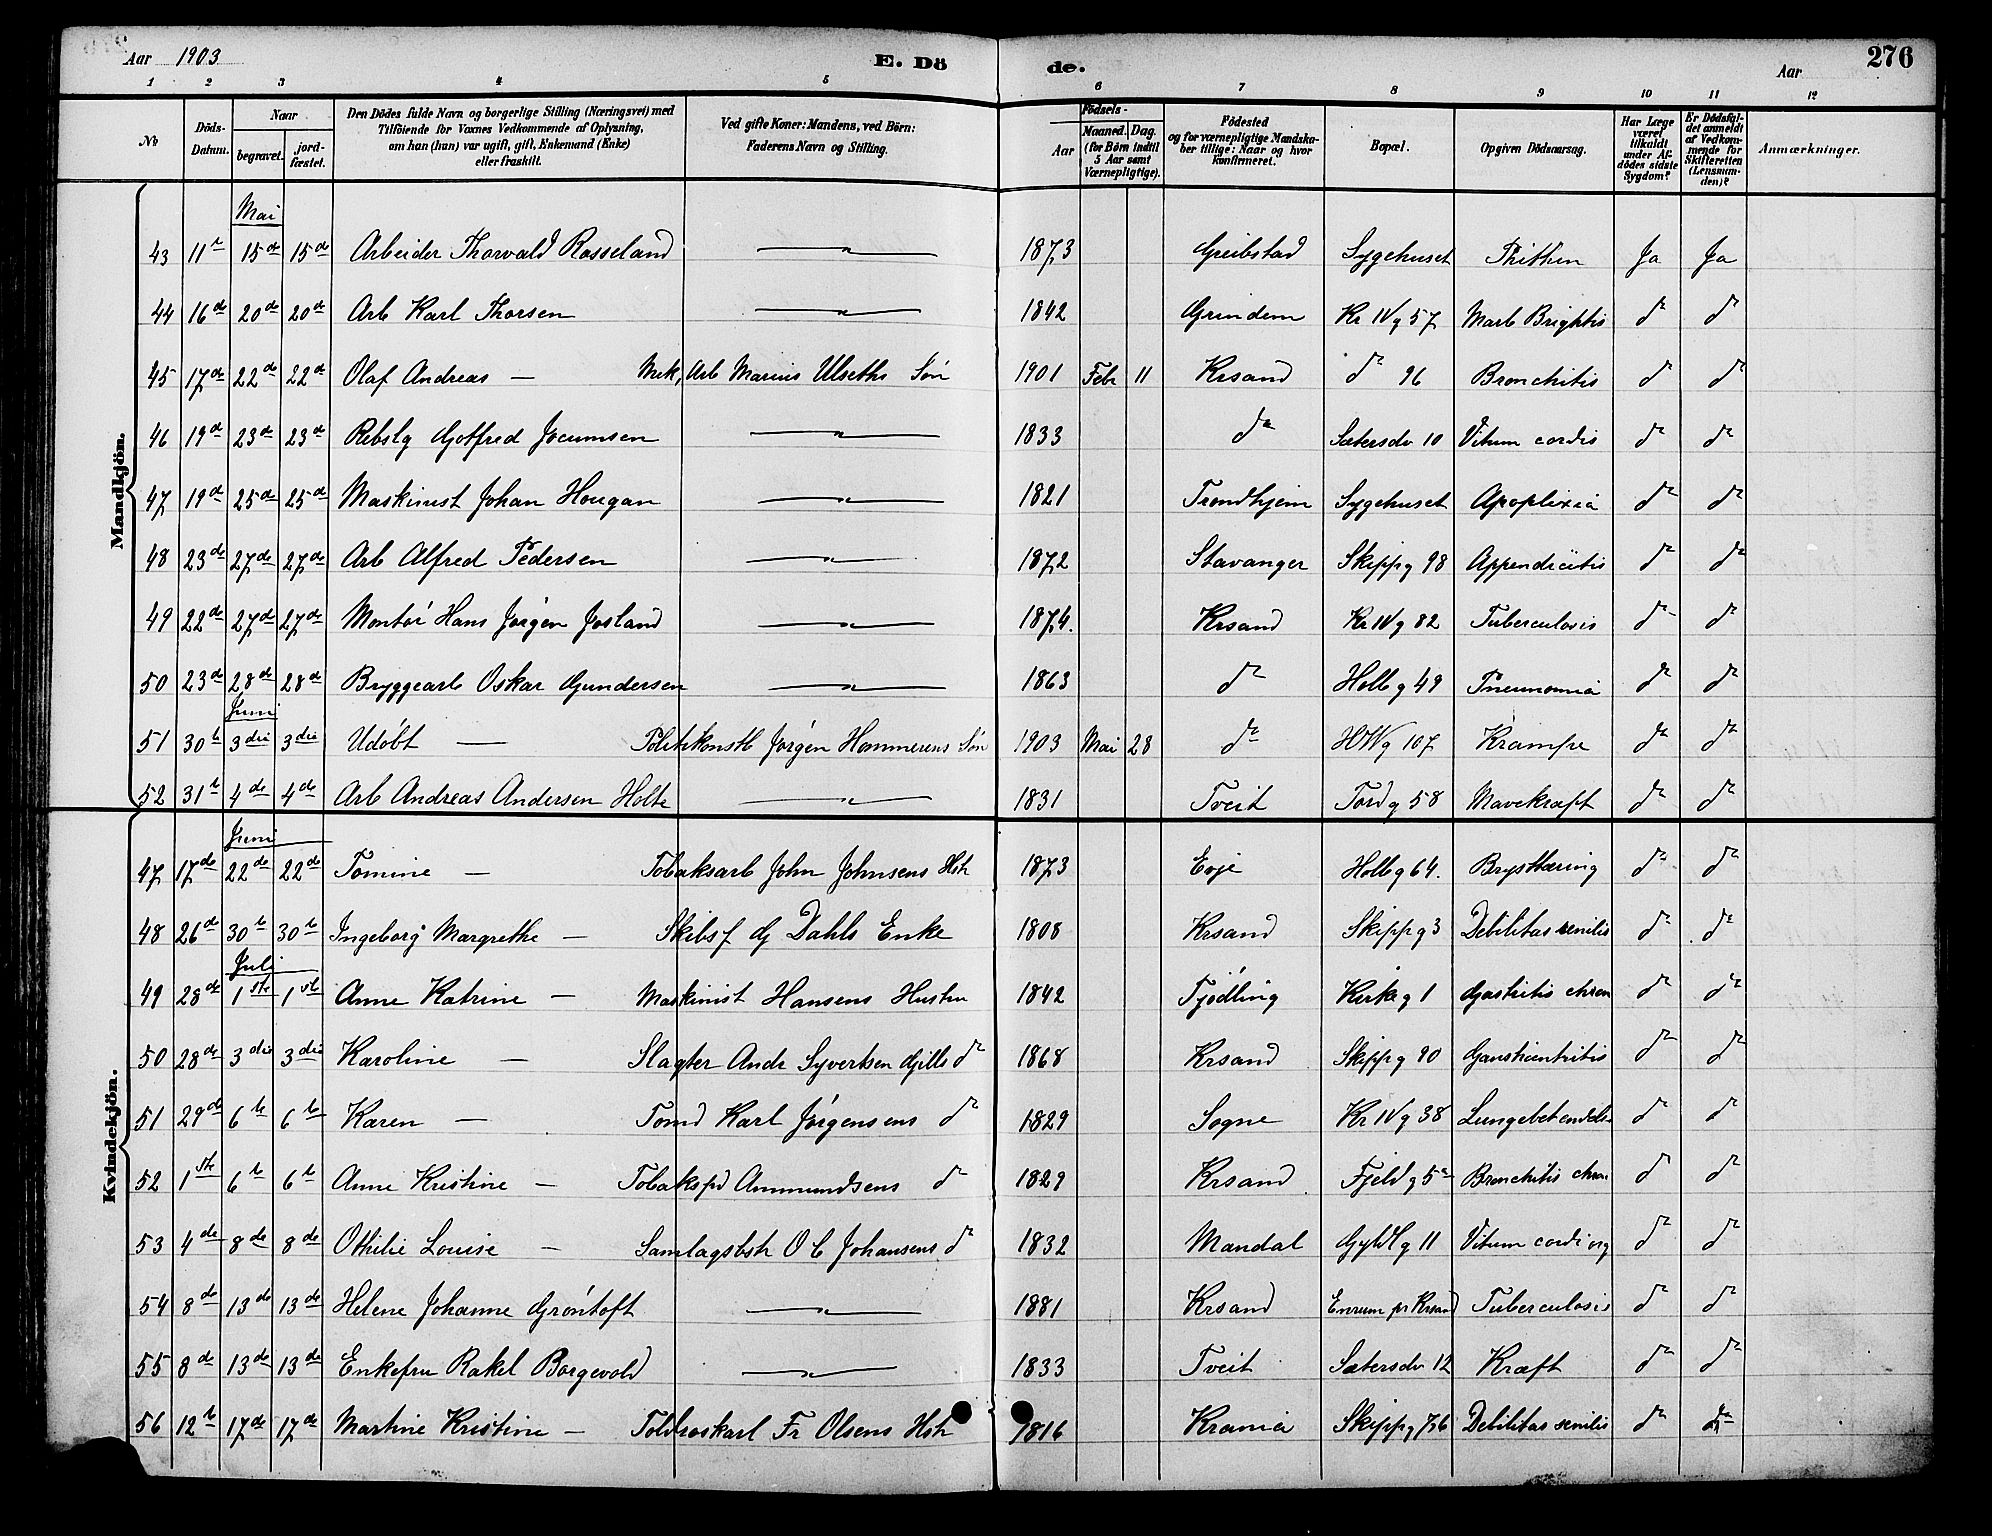 Aar 1903 E. Dö de. Aar 276
1 2 3 4 5 6 7 8 9 10 11 12
No Döds-Datum. Naar begravet. jord-fæstet. Den Dödes fulde Navn og borgerlige Stilling (Næringsvei) med Tilföiende for Voxnes Vedkommende af Oplysning, om han (hun) var ugift, gift, Enkemand (Enke) eller fraskilt. Ved gifte Koner: Mandens, ved Börn: Faderens Navn og Stilling. Födsels- Aar Maaned. Dag. (for Börn indtil 5 Aar samt Værnepligtige). Födested og for værnepligtige Mandskaber tillige: Naar og hvor konfirmeret. Bopæl. Opgiven Dödsaarsag. Har Læge været tilkaldt under Afdödes sidste Sygdom? Er Dödsfaldet anmeldt af Vedkommende for Skifteretten (Lensmanden)? Anmærkninger.
Mandkjön.
Mai
43 11te 15de 15de Arbeider Thorvald Rosseland — 1873 Greibstad Sygehuset Phithsin Ja Ja
44 16de 20de 20de Arb Karl Thorsen — 1842 Grindem Kr IVg 57 Morb Brightis do do
45 17de 22de 22de Olaf Andreas — Mek, Arb Marius Ulseths Søn 1901 Febr 11 Krsand do 96 Bronchitis do do
46 19de 23de 23de Rebslg Gotfred Jocumsen — 1833 do Sætersdv 10 Vitium cordis do do
47 19de 25de 25de Maskinist Johan Hougan — 1821 Trondhjem Sygehuset Apoplexia do do
48 23de 27de 27de Arb Alfred Pedersen — 1872 Stavanger Skippg 98 Appendicitis do do
49 22de 27de 27de Montør Hans Jørgen Josland — 1874. Krsand Kr IVg 82 Tuberculosis do do
50 23de 28de 28de Bryggearb Oskar Gundersen — 1863 do Holbg 49 Pneumonia do do
Juni
51 30te 3die 3die Udøbt — Politikonstb Jørgen Hammerens Søn 1903 Mai 28 do HWg 107 Krampe do do
52 31te 4de 4de Arb Andreas Andersen Holte — 1831 Tveit Tordg 58 Mavekræft do do
Kvindekjön.
Juni
47 17de 22de 22de Tomine — Tobaksarb John Johnsens Hstr 1873 Evje Holbg 64. Brysttæring do do
48 26de 30te 30te Ingeborg Margrethe — Skibsf G Dahls Enke 1808 Krsand Skippg 3 Debilitas senilis do do
Juli
49 28de 1ste 1ste Anne Katrine — Maskinist Hansens Hustru 1842 Fjödling Kirkeg 1 Gastritis chron do do
50 28de 3die 3die Karoline — Slagter Andr Syvertsen Gjills do 1868 Krsand Skippg 90 do do
51 29de 6te 6te Karen — Tømd Karl Jørgensens do 1829 Sogne Kr IVg 38 Lungebetændelse do do
52 1ste 6te 6te Anne Kristine — Tobakspd Ammundsens do 1829 Krsand Fjeldg 5a Bronchitis chron do do
53 4de 8de 8de Othilie Louise — Samlagsbstr O C Johansens do 1832 Mandal Gyldlg 11 Vitium cordi org do do
54 8de 13de 13de Helene Johanne Grøntoft — 1881 Krsand Enrum pr Krsand Tuberculosis do do
55 8de 13de 13de Enkefru Rakel Borgevold — 1833 Tveit Sætersdv 12 Kræft do do
56 12te 17de 17de Martine Kristine — Toldroskarl Fr Olsens Hstr 1816 Krania Skippg 76 Debilitas senilis do do